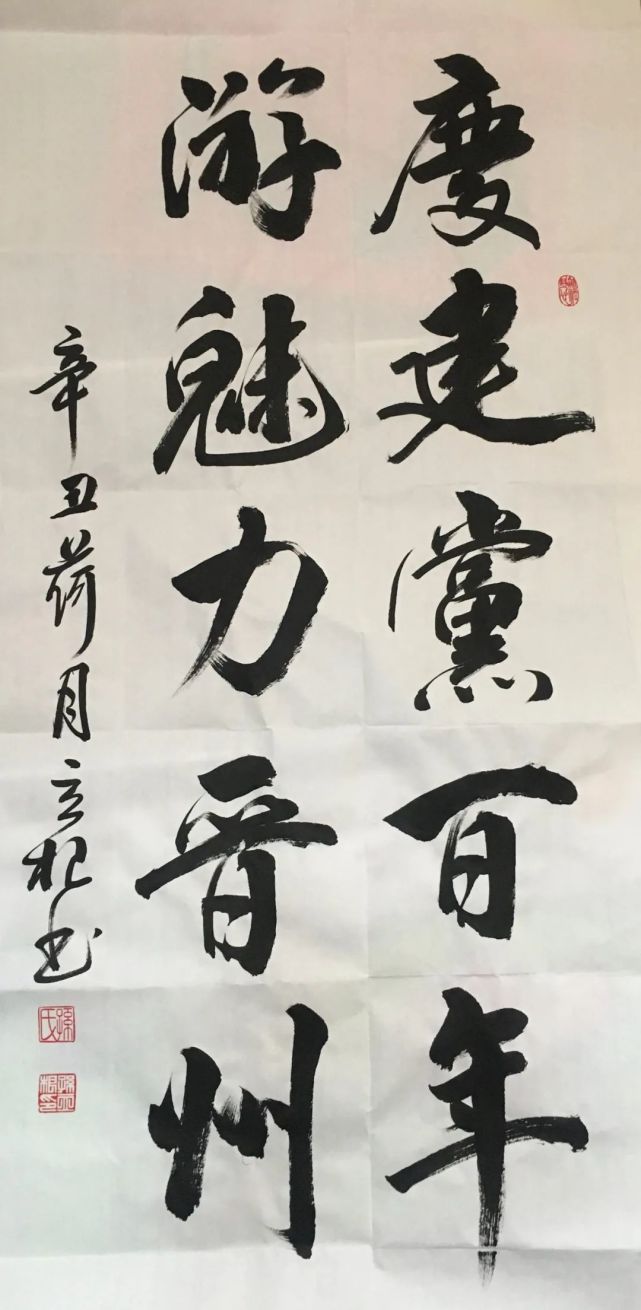 慶建黨百年
游魅力晋州
辛丑荷月立根书
孫氏